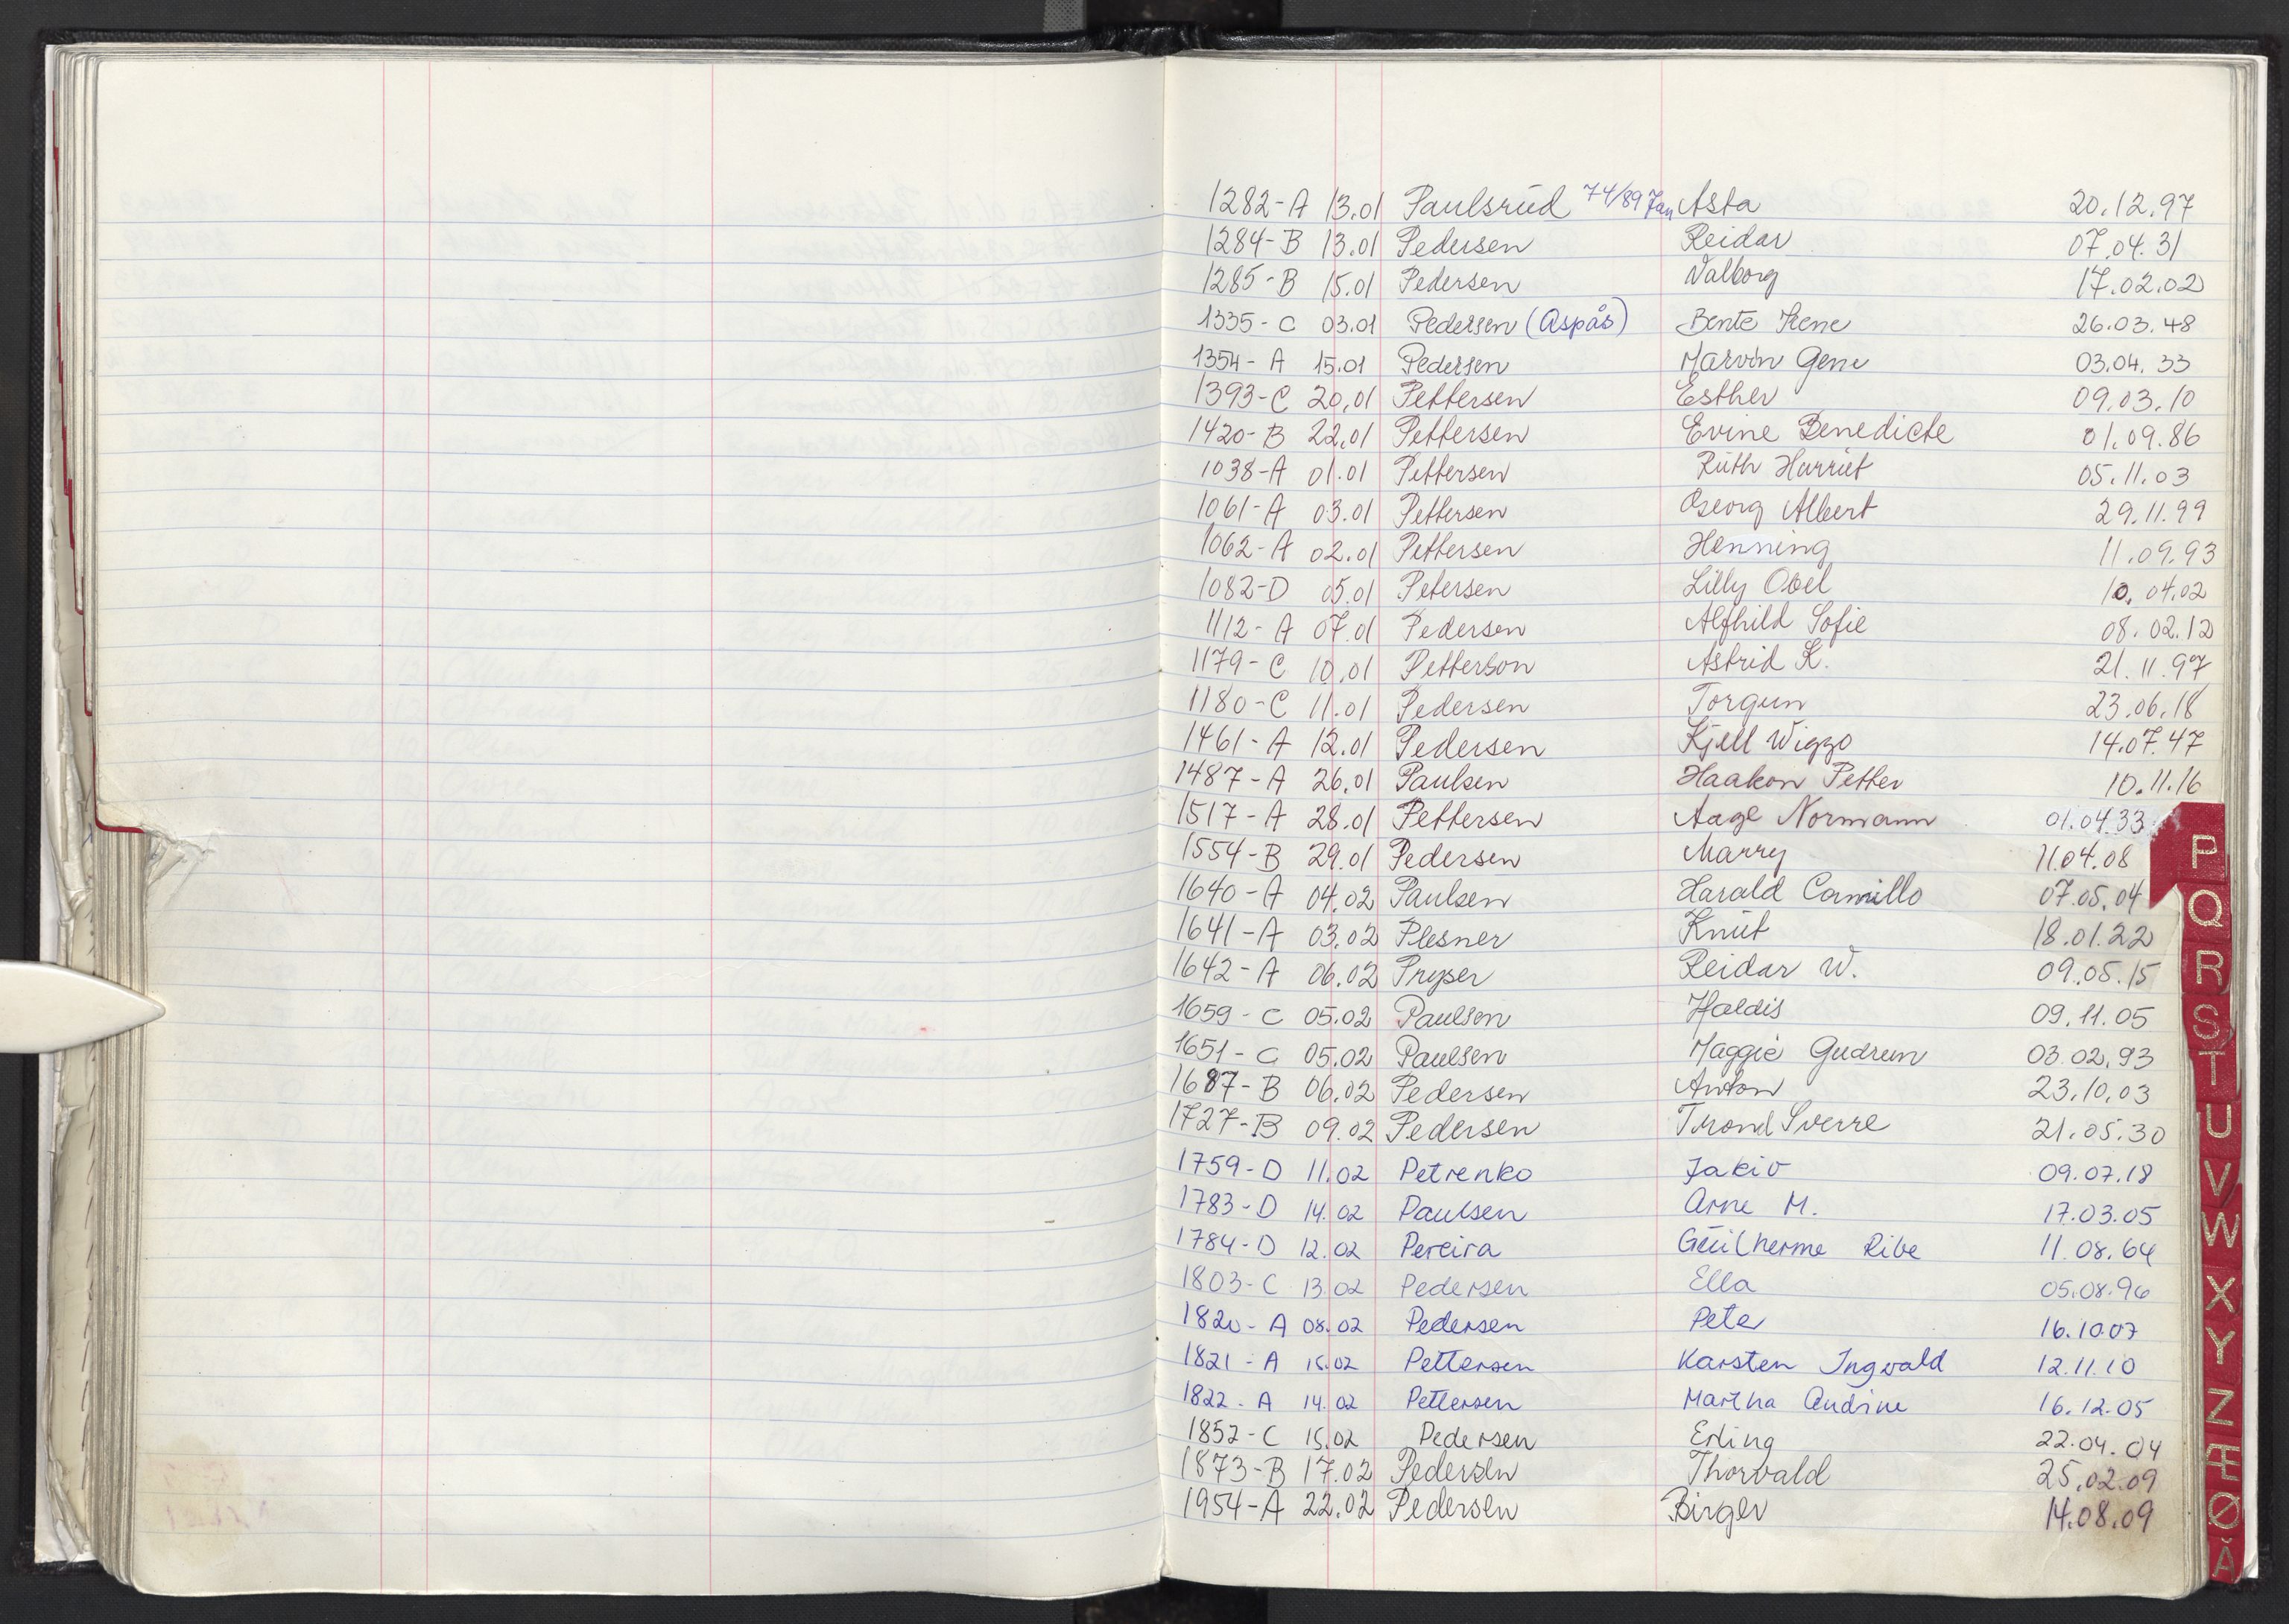 1282-A 13.01 Paulsrud 74/89 Jan Asta 20.12.97
1284-B 13.01 Pedersen Reidar 07.04.31
1285-B 15.01 Pedersen Valborg 17.02.02
1335-C 03.01 Pedersen (Aspås) Bente Irene 26.03.48
1354-A 15.01 Pedersen Marvin Gene 03.04.33
1393-C 20.01 Pettersen Esther 09.03.10
1420-B 22.01 Pettersen Evine Benedicte 01.09.86
1038-A 01.01 Pettersen Ruth Harriet 05.11.03
1061-A 03.01 Pettersen Georg Albert 29.11.99
1062-A 02.01 Pettersen Henning 11.09.93
1082-D 05.01 Petersen Lilly 10.04.02
1112-A 07.01 Pedersen Alfhild Sofie 08.02.12
1179-C 10.01 Petterson Astrid K. 21.11.97
1180-C 11.01 Pedersen Torgun 23.06.18
1461-A 12.01 Pedersen Kjell Wiggo 14.07.47
1487-A 26.01 Paulsen Haakon Petter 10.11.16
1517-A 28.01 Pettersen Aage Normann 01.04.33
1554-B 29.01 Pedersen Marry 11.04.08
1640-A 04.02 Paulsen Harald Camillo 07.05.04
1641-A 03.02 Plesner Knut 18.01.22
1642-A 06.02 Pryser Reidar W. 09.05.15
1659-C 05.02 Paulsen Haldis 09.11.05
1651-C 05.02 Paulsen Maggie Gudrun 03.02.93
1687-B 06.02 Pedersen Anton 23.10.03
1727-B 09.02 Pedersen Trond Sverre 21.05.30
1759-D 11.02 Petrenko Jakiv 09.07.18
1783-D 14.02 Paulsen Arne M. 17.03.05
1784-D 12.02 Pereira Guilherme Ribe 11.08.64
1803-C 13.02 Pedersen Ella 05.08.96
1820-A 08.02 Pedersen Peter 16.10.07
1821-A 15.02 Pettersen Karsten Ingvald 12.11.10
1822-A 14.02 Pettersen Martha Andrine 16.12.05
1852-C 15.02 Pedersen Erling 22.04.04
1873-B 17.02 Pedersen Thorvald 25.02.09
1954-A 22.02 Pedersen Birger 14.08.09
P
Q
R
S
T
U
V
W
X
Y
Z
Æ
Ø
Å